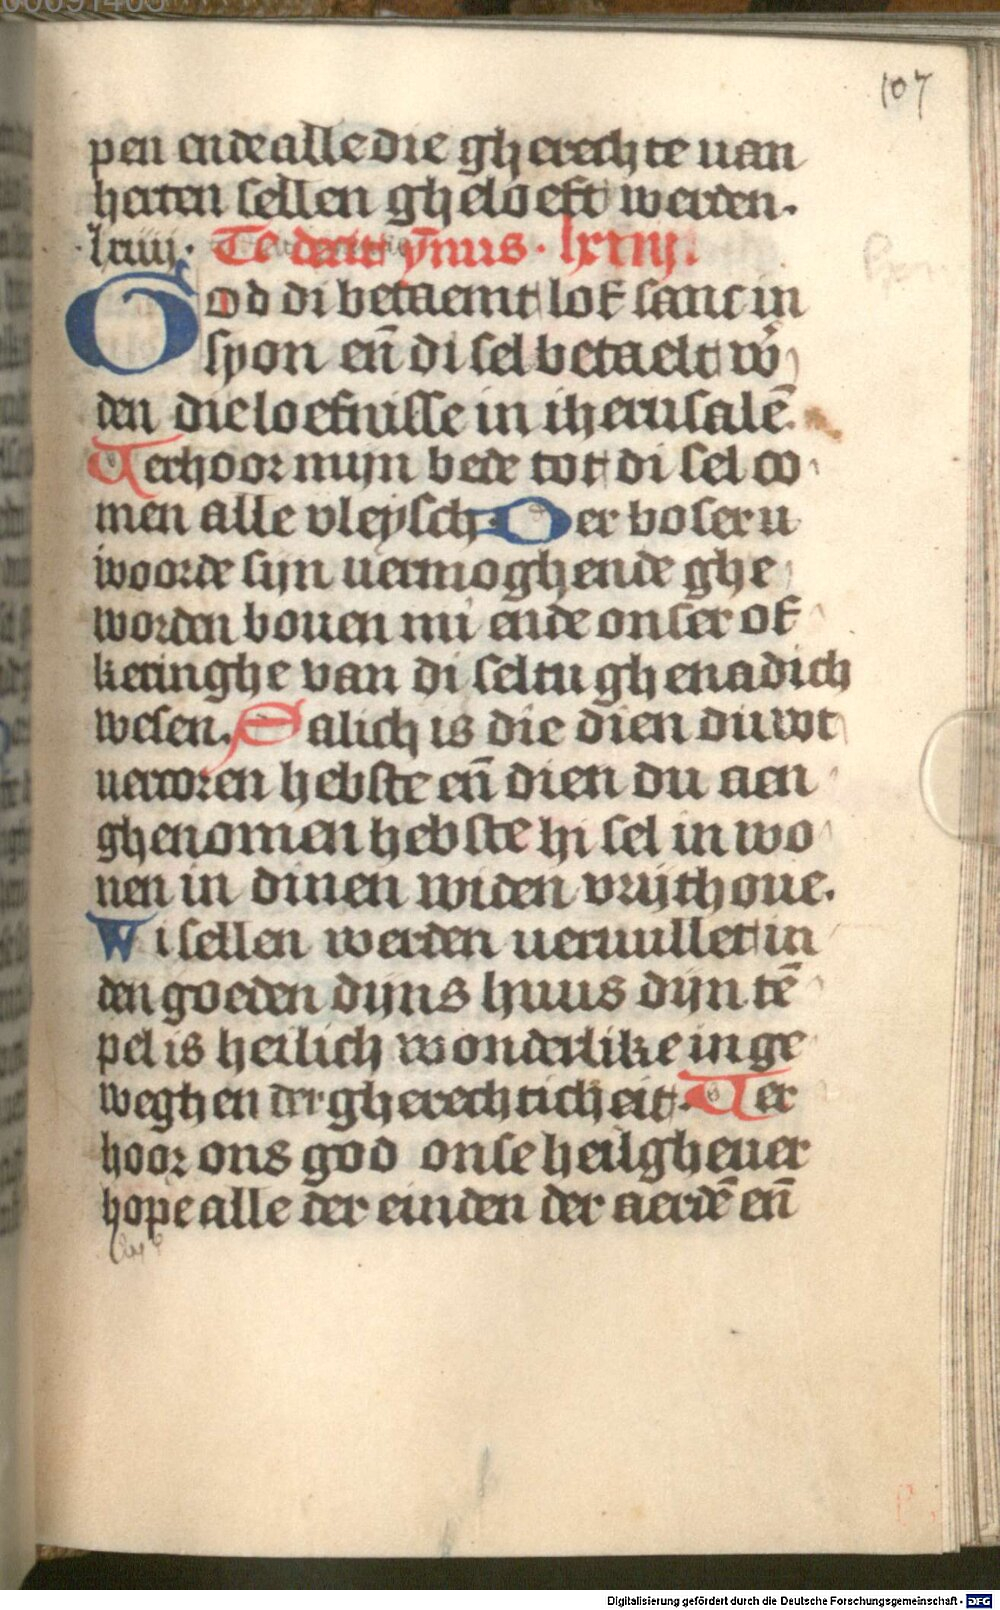 107
pen ende alle die gherechte uan
herten sellen gheloeft werden.
·lxiiij· Te decet ymnus · lxiiij.
God di betaemt lof sanc in
syon en̄ di sel betaelt w̄
den die loefnisse in iherusalē.
Verhoor mijn bede tot di sel co
men alle vleysch. Der boser u
woorde sijn uermoghende ghe
worden bouen mi ende onser of
keringhe van di seltu ghenadich
wesen. Salich is die dien du wt
uercoren hebste en̄ dien du aen
ghenomen hebste hi sel in wo
nen in dinen widen vrijthoue.
Wi sellen werden ueruullet in
den goeden dijns huus dijn tē
pel is heilich wonderlike in ge
weghen der gherechticheit. Ver
hoor ons god onse heilgheuer
hope alle der einden der aerdē en̄
Digitalisierung gefördert durch die Deutsche Forschungsgemeinschaft - DFG